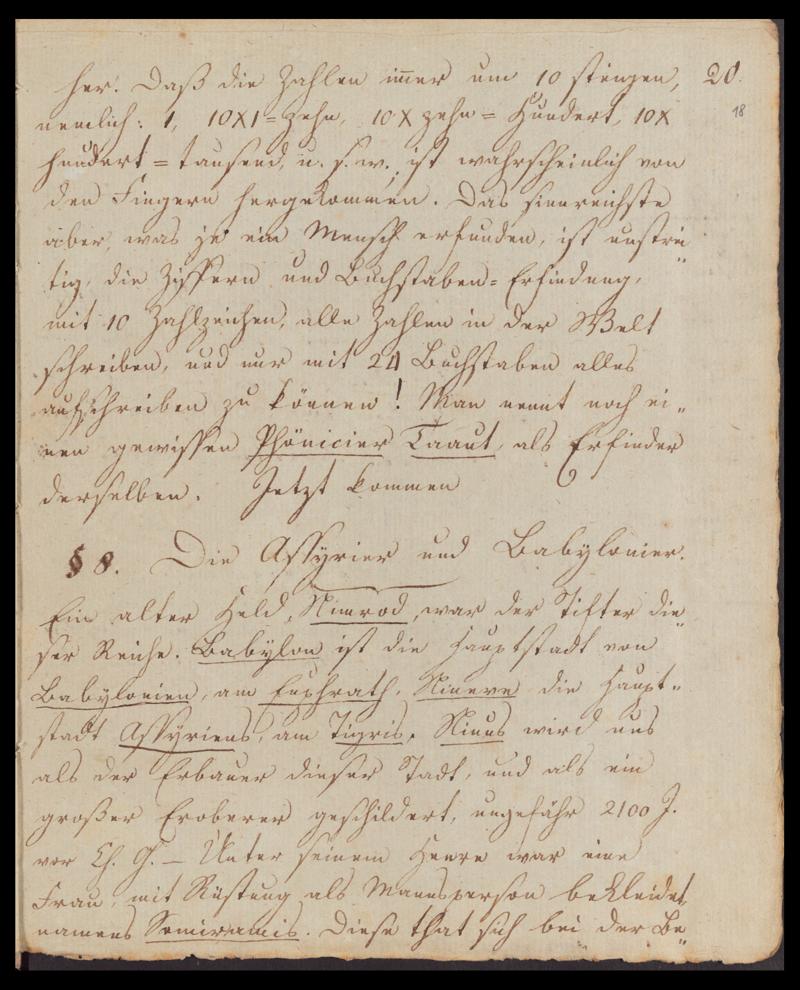 her. Daß die Zahlen im̅er um 10 steigen, 20.
nemlich: 1, 10X1=zehn, 10X zehn = Hundert, 10X 18
hundert = tausend, u. s. w., ist wahrscheinlich von
den Fingern hergekommen. Das sinnreichste
aber, was je ein Mensch erfunden, ist unstrei„
tig, die Ziffern und Buchstaben=Erfindung,
mit 10 Zahlzeichen, alle Zahlen in der Welt
schreiben, und nur mit 24 Buchstaben alles
aufschreiben zu können! Man nennt noch ei„
nen gewissen Phönicier Taaut, als Erfinder
derselben. Jetzt kommen
§ 8. Die Assyrier und Babylonier.
Ein alter Held, Nimrod, war der Stifter die„
ser Reiche. Babylon ist die Hauptstadt von
Babylonien, am Euphrath, Nineve die Haupt„
stadt Assyriens, am Tigris. Ninus wird uns
als der Erbauer dieser Stadt, und als ein
großer Eroberer geschildert, ungefähr 2100 J.
vor Ch. G. — Unter seinem Heere war eine
Frau, mit Rüstung als Mannsperson bekleidet,
namens Semiramis. Diese that sich bei der Be„